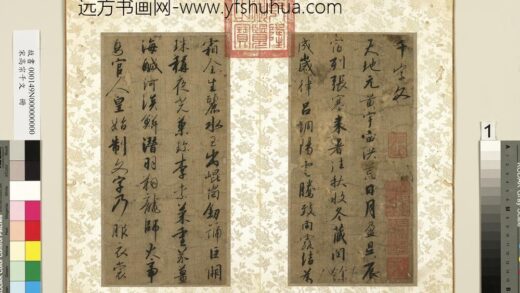 远方书画网-www.yfshuhua.com
千字文
天地元黄宇宙洪荒日月盈昃辰
宿列張寒来暑往秋收冬藏閏餘
成歲律吕調陽雲騰致雨露結為
霜金生麗水玉出崐崗劒號巨闕
珠稱夜光菓珎李柰菜重芥薑
海鹹河淡鱗潛羽翔龍師火帝
鳥官人皇始制文字乃服衣裳
故書 000149N000000000
宋高宗千文 冊
1